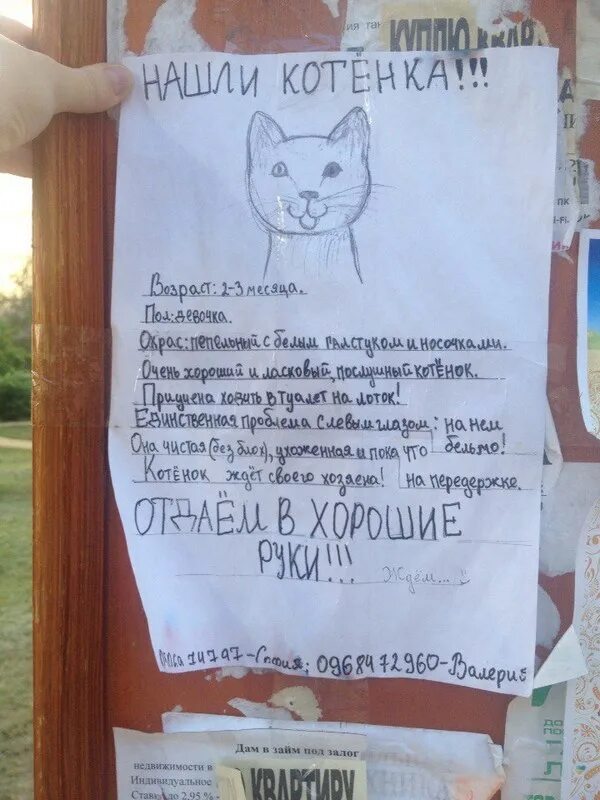 КУПЛЮ КВАР
НАШЛИ КОТЁНКА!!!
Возраст: 2-3 месяца.
Пол: девочка.
Окрас: пепельный с белым галстуком и носочками.
Очень хороший и ласковый, послушный котёнок.
Приучена ходить в туалет на лоток!
Единственная проблема с левым глазом: на нем
бельмо!
Она чистая (без блох), ухоженная и пока что
на передержке.
Котёнок ждёт своего хозяена!
ОТДАЁМ В ХОРОШИЕ
РУКИ!!!
Ждём...
14797-София; 0968472960-Валерия
Дам в займ под залог
недвижимости в
Индивидуальное
Ставка до 2,95 %
КВАРТИРУ